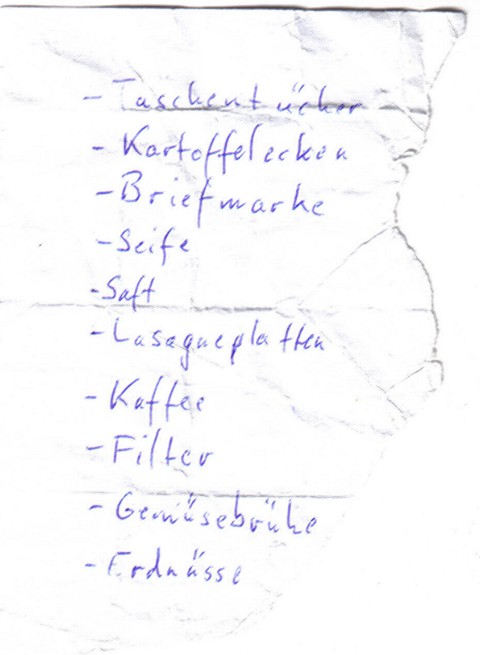 - Taschentücher
- Kartoffelecken
- Briefmarke
- Seife
- Saft
- Lasagneplatten
- Kaffee
- Filter
- Gemüsebrühe
- Erdnüsse